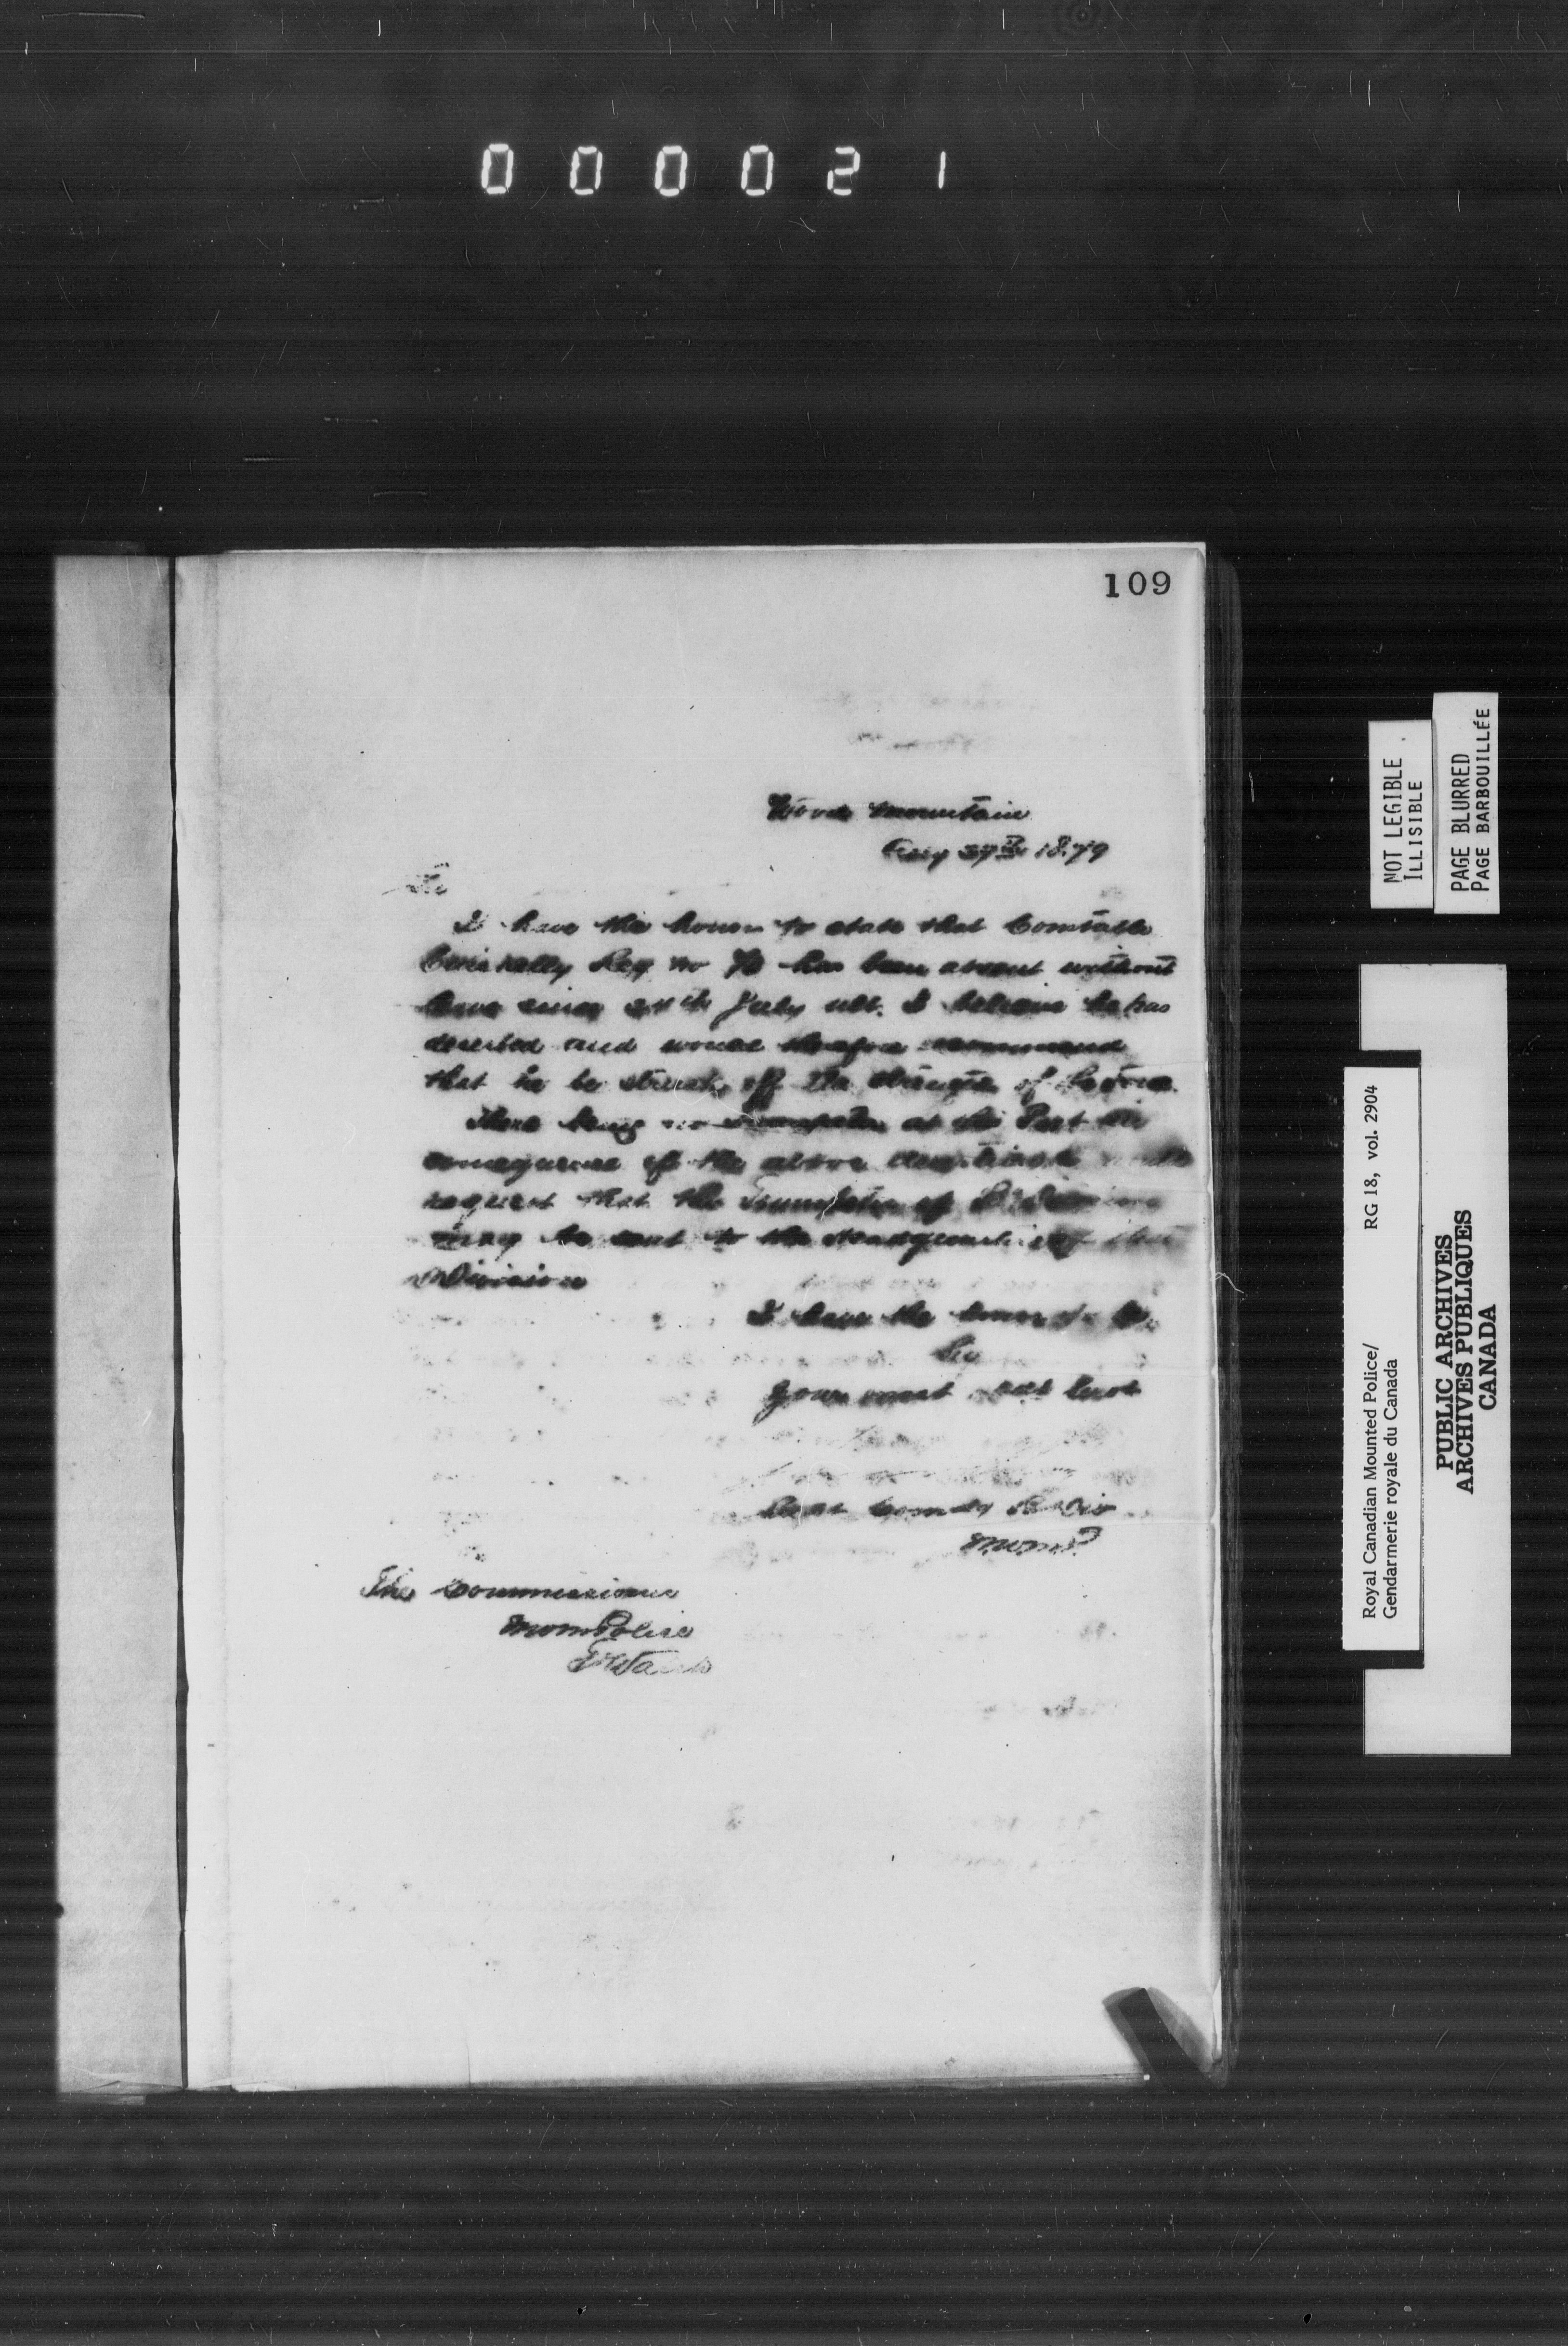 000021
109
Wood Mountain
Aug 1879
Sir
I have the honor to state that Constable
Reg no has been absent without
leave since July ult. I believe he has
deserted and would therefore recommend
that he be struck off the strength of the Force.
There being no Trumpeter at this Post in
consequence of the above desertion
request that the Trumpeter of
may be sent to the Headquarters of
Division
I have the honor to be
Sir
Your most obt servt
Comdg Div
N.W.M.P.
The Commissioner
NWM Police
Ft Walsh
NOT LEGIBLE
ILLISIBLE
PAGE BLURRED
PAGE BARBOUILLÉE
Royal Canadian Mounted Police/ RG 18, vol. 2904
Gendarmerie royale du Canada
PUBLIC ARCHIVES
ARCHIVES PUBLIQUES
CANADA